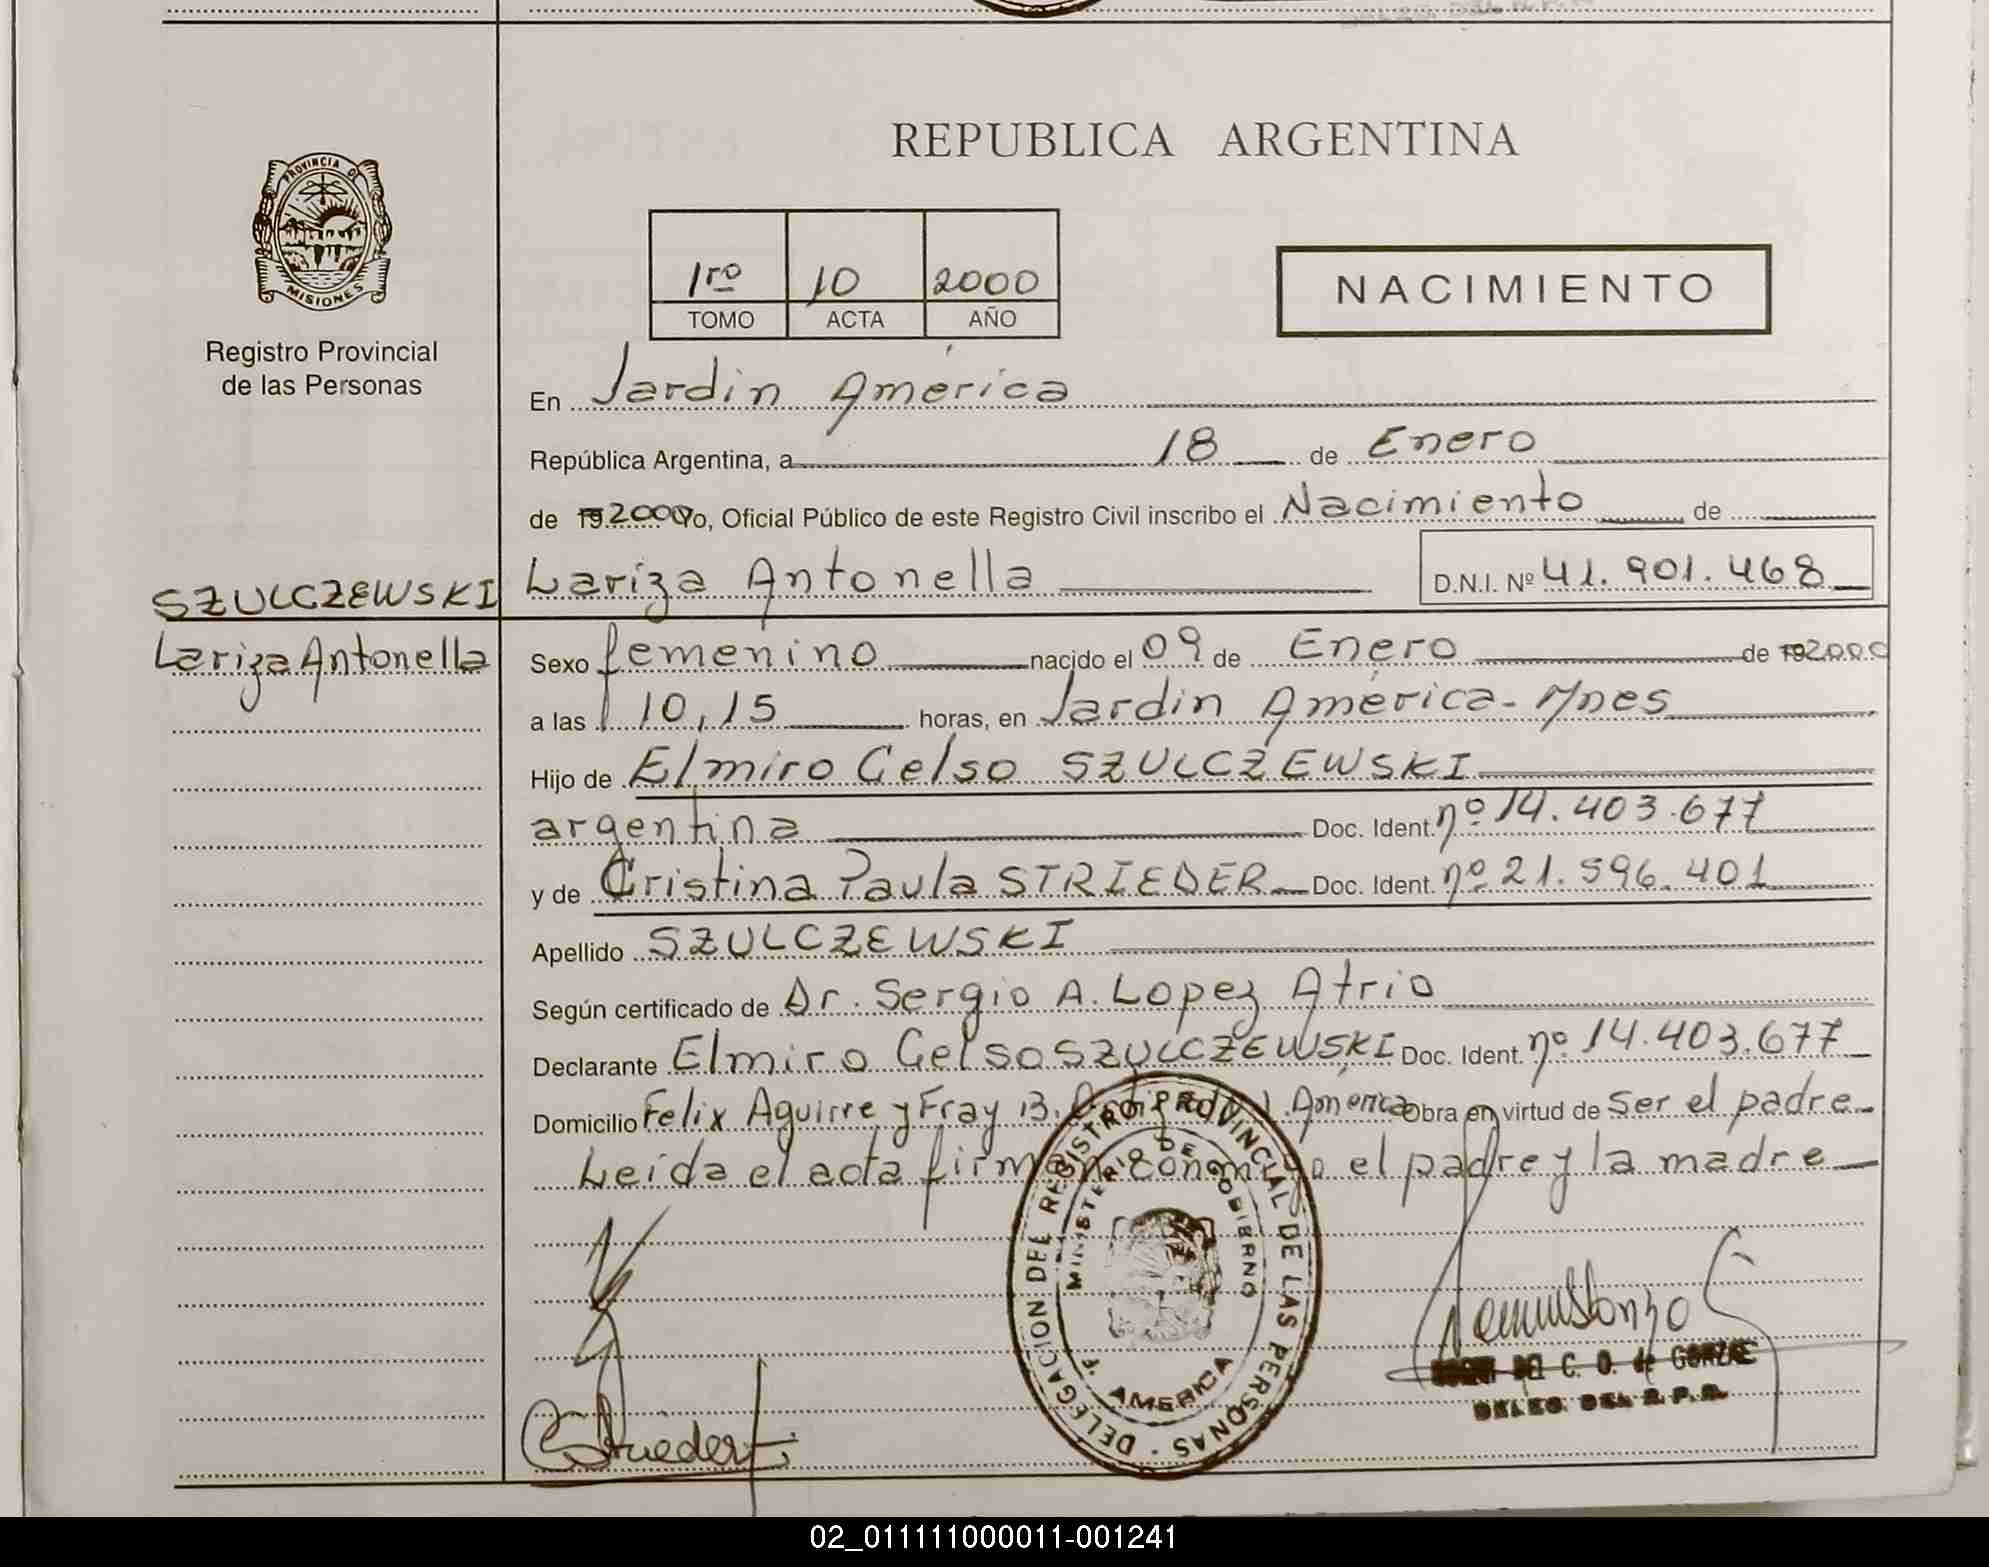 REPUBLICA ARGENTINA
PROVINCIA DE
MISIONES
Registro Provincial
de las Personas
1ro 10 2000
TOMO ACTA AÑO
NACIMIENTO
En Jardin América
República Argentina, a 18 de Enero
de 19 2000 Yo, Oficial Público de este Registro Civil inscribo el Nacimiento de
Lariza Antonella D.N.I. Nº 41.901.468
SZULCZEWSKI
Lariza Antonella
Sexo femenino nacido el 09 de Enero de 19 2000
a las 10,15 horas, en Jardin América - Mnes
Hijo de Elmiro Celso SZULCZEWSKI
argentina Doc. Ident. nº 14.403.677
y de Cristina Paula STRIEDER Doc. Ident. nº 21.596.401
Apellido SZULCZEWSKI
Según certificado de Dr. Sergio A. Lopez Atrio
Declarante Elmiro Celso SZULCZEWSKI Doc. Ident. nº 14.403.677
Domicilio Felix Aguirre y Fray B. J. América Obra en virtud de ser el padre
Leída el acta firman conmigo el padre y la madre
DELEGACION DEL REGISTRO PROVINCIAL DE LAS PERSONAS
MINISTERIO DE GOBIERNO
J. AMERICA
C. Strieder
DEL C. O. de GONZALE
DELEG. DEL R.P.P.
02_011111000011-001241